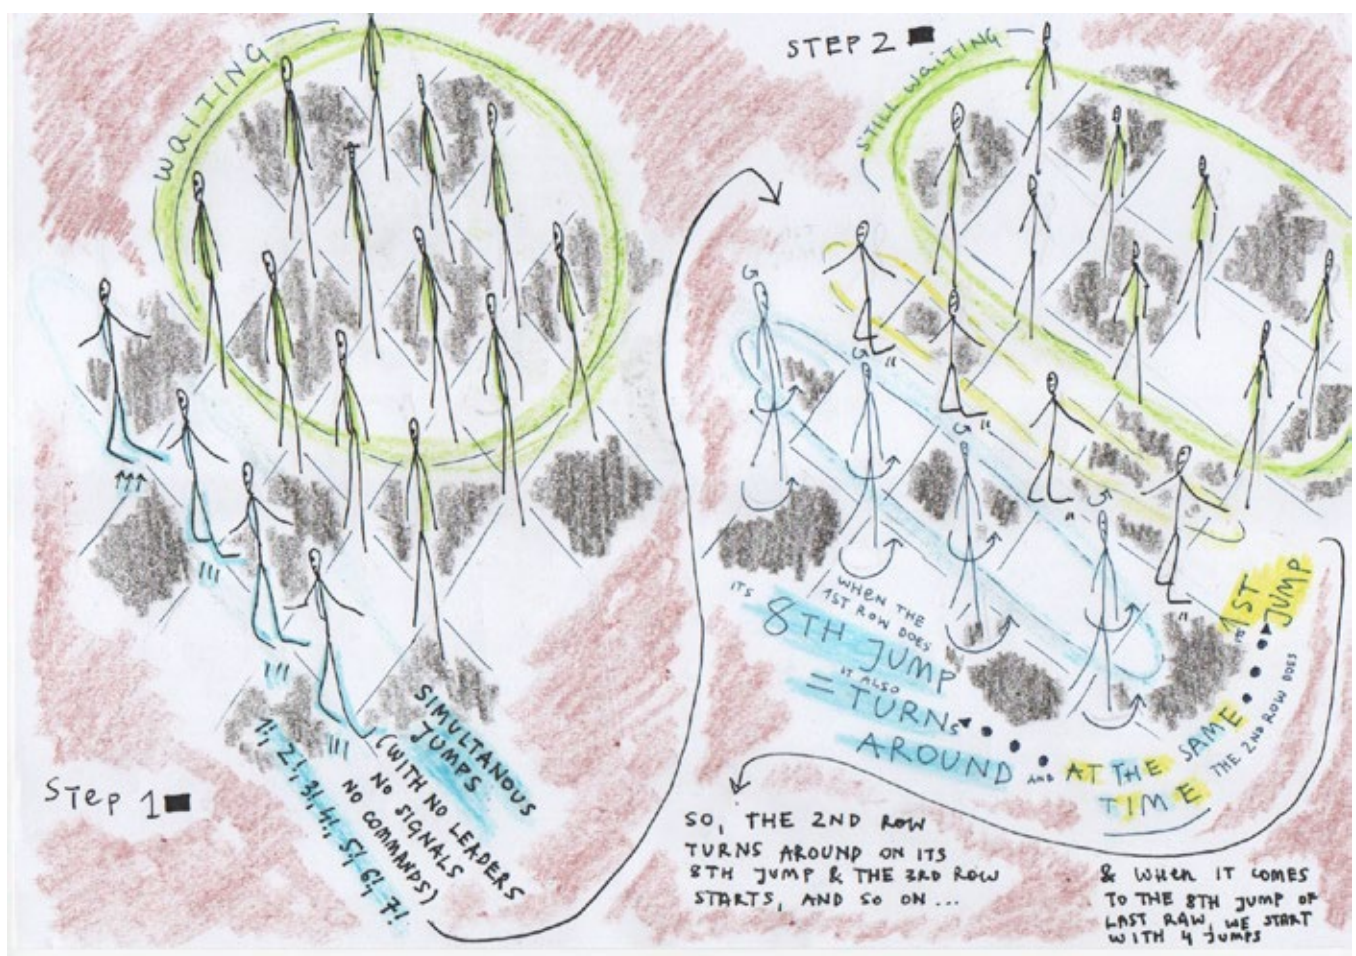 WAITING
STEP 1
SIMULTANOUS
JUMPS
(WITH NO LEADERS
NO SIGNALS
NO COMMANDS)
1!, 2!, 3!, 4!, 5!, 6!, 7!
STEP 2
STILL WAITING
WHEN THE
1ST ROW DOES
ITS 8TH JUMP
IT ALSO
= TURNS
AROUND
AND AT THE SAME
TIME
THE 2ND ROW DOES
ITS 1ST
JUMP
SO, THE 2ND ROW
TURNS AROUND ON ITS
8TH JUMP & THE 3RD ROW
STARTS, AND SO ON ...
& WHEN IT COMES
TO THE 8TH JUMP OF
LAST RAW, WE START
WITH 4 JUMPS